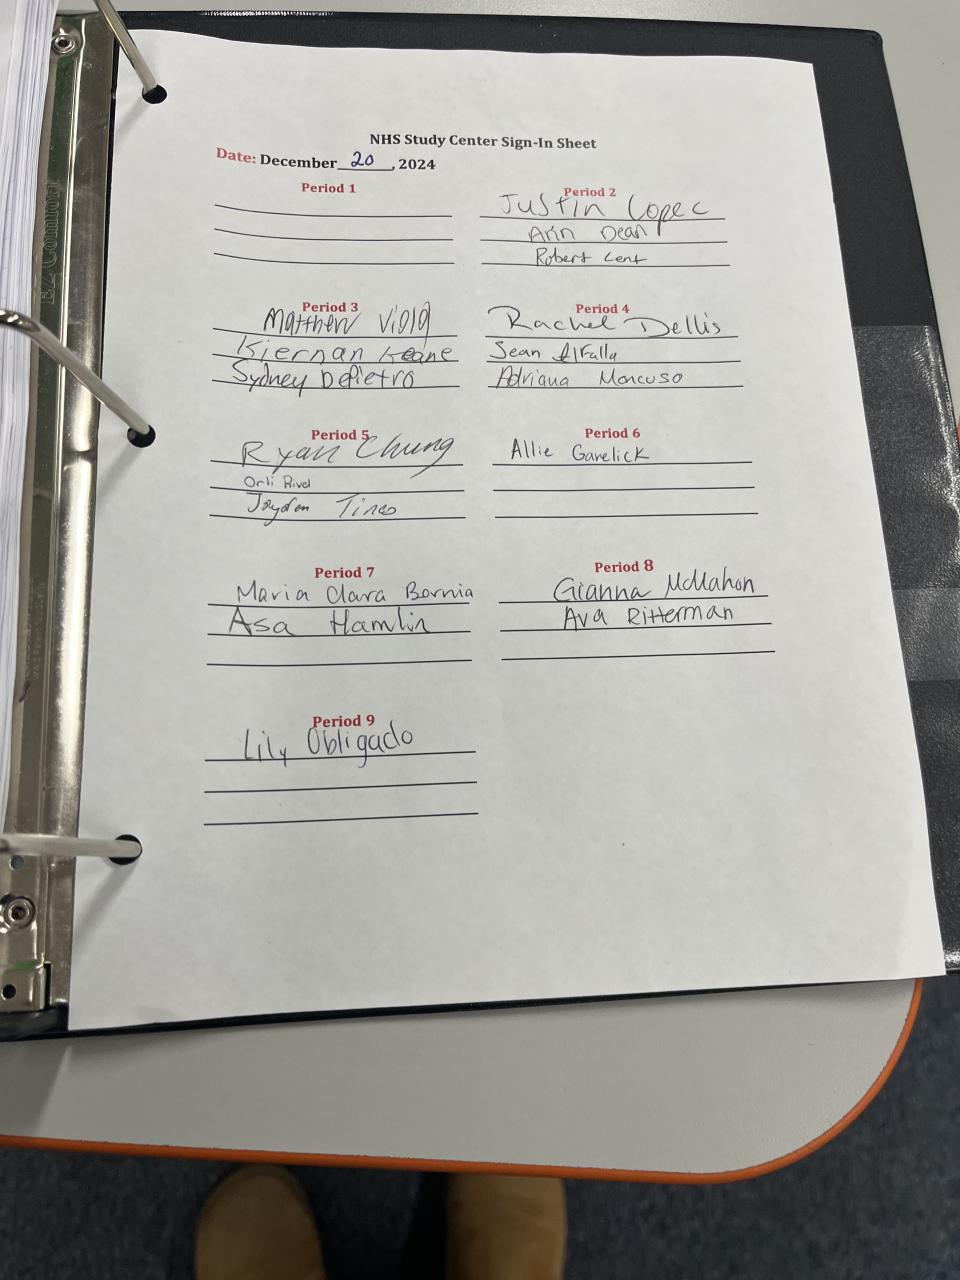 NHS Study Center Sign-In Sheet
Date: December 20, 2024
Period 1
Period 2
Justin Lopec
Ann Dean
Robert Lent
Period 3
Matthew Viola
Kiernan Keane
Sydney DePietro
Period 4
Rachel Dellis
Sean Alfalla
Adriana Mancuso
Period 5
Ryan Chung
Orli Rivel
Jaydon Tineo
Period 6
Allie Garelick
Period 7
Maria Clara Bornia
Asa Hamlin
Period 8
Gianna McMahon
Ava Ritterman
Period 9
Lily Obligado
EZ Comfort